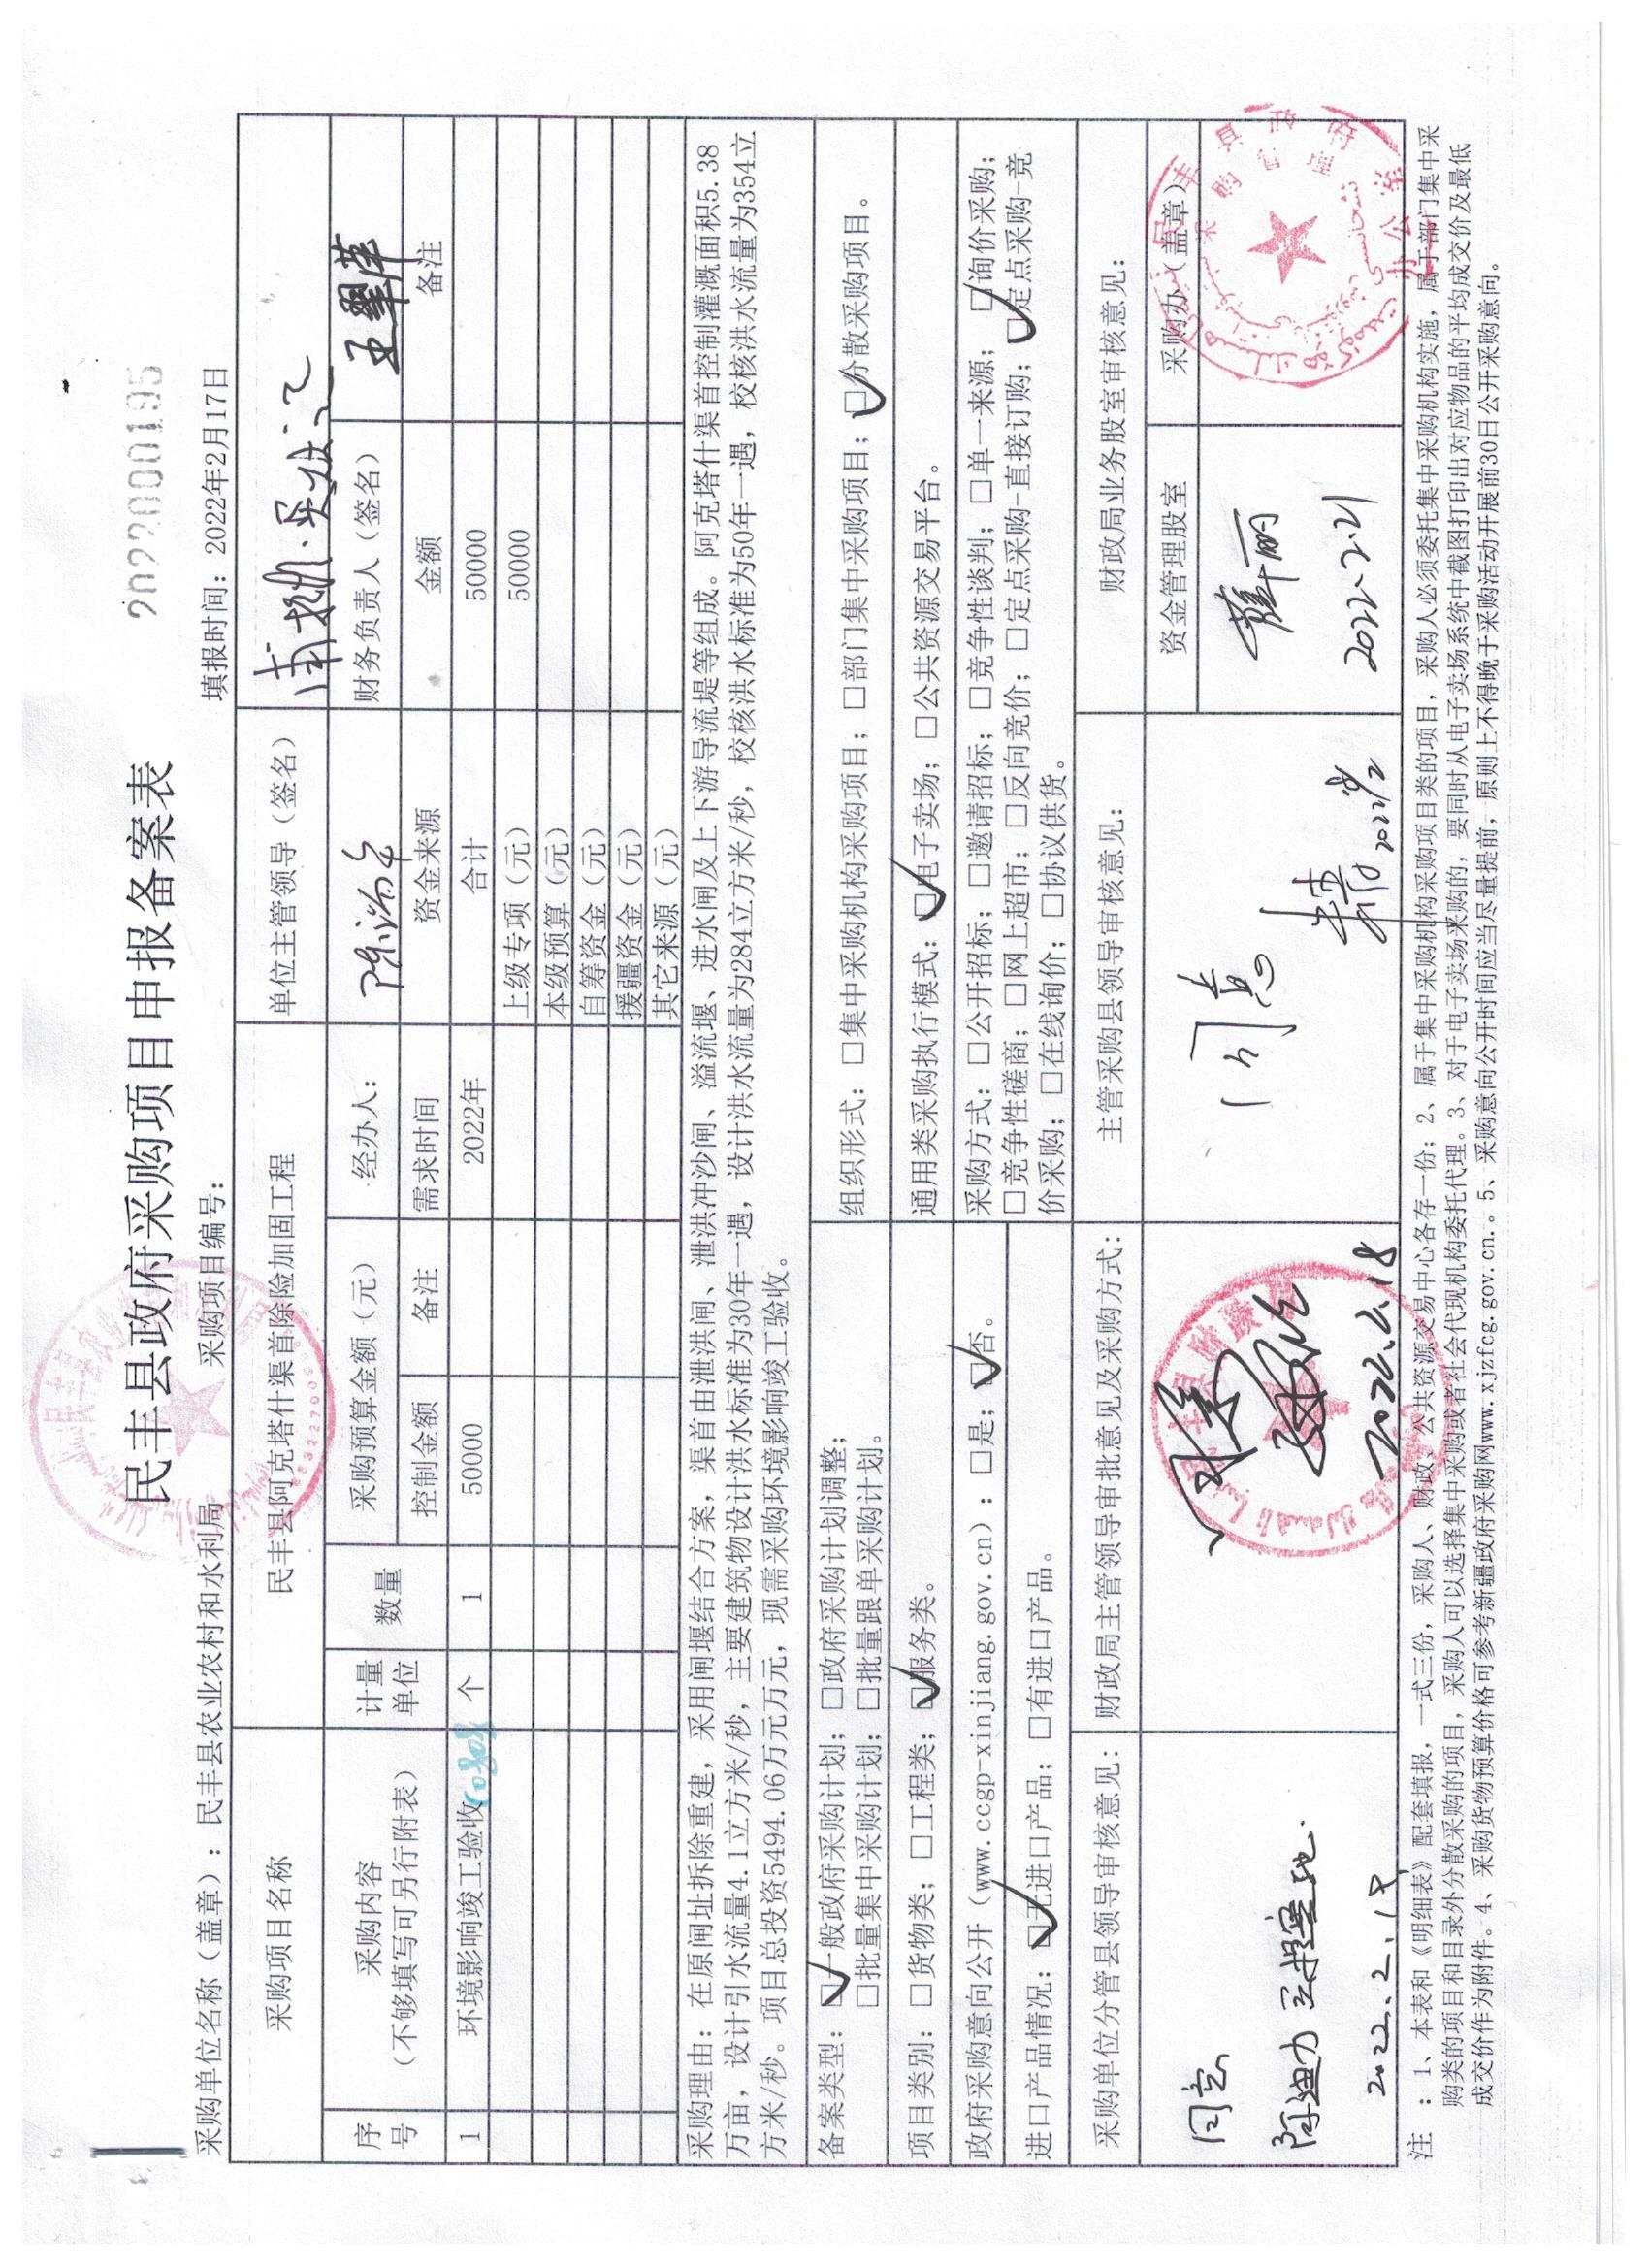 2022000195
民丰县政府采购项目申报备案表
采购单位名称（盖章）：民丰县农业农村和水利局 采购项目编号： 填报时间：2022年2月17日
采购项目名称 民丰县阿克塔什渠首除险加固工程 单位主管领导（签名）
采购内容（不够填写可另行附表） 计量单位 数量 采购预算金额（元） 经办人： 财务负责人（签名）
序号 控制金额 备注 需求时间 资金来源 金额 备注
1 环境影响竣工验收 个 1 50000 2022年 合计 50000
上级专项（元） 50000
本级预算（元）
自筹资金（元）
援疆资金（元）
其它来源（元）
采购理由：在原闸址拆除重建，采用闸堰结合方案，渠首由泄洪闸、泄洪冲沙闸、溢流堰、进水闸及上下游导流堤等组成。阿克塔什渠首控制灌溉面积5.38
万亩，设计引水流量4.1立方米/秒，主要建筑物设计洪水标准为30年一遇，设计洪水流量为284立方米/秒，校核洪水标准为50年一遇，校核洪水流量为354立
方米/秒。项目总投资5494.06万元万元，现需采购环境影响竣工验收。
备案类型：☑一般政府采购计划；□政府采购计划调整；
□批量集中采购计划；□批量跟单采购计划。
组织形式：□集中采购机构采购项目；□部门集中采购项目；☑分散采购项目。
项目类别：□货物类；□工程类；☑服务类。
通用类采购执行模式：☑电子卖场；□公共资源交易平台。
政府采购意向公开（www.ccgp-xinjiang.gov.cn）：□是；☑否。
进口产品情况：☑无进口产品；□有进口产品。
采购方式：□公开招标；□邀请招标；□竞争性谈判；□单一来源；□询价采购；
□竞争性磋商；□网上超市；□反向竞价；□定点采购-直接订购；☑定点采购-竞
价采购；□在线询价；□协议供货。
采购单位分管县领导审核意见： 财政局主管领导审批意见及采购方式： 主管采购县领导审核意见： 财政局业务股室审核意见：
资金管理股室 采购办（盖章）
同意
2022.2.18
2022.2.18
同意
2022.2.21
注：1、本表和《明细表》配套填报，一式三份，采购人、财政、公共资源交易中心各存一份；2、属于集中采购机构采购项目类的项目，采购人必须委托集中采购机构实施，属于部门集中采
购类的项目和目录外分散采购的项目，采购人可以选择集中采购或者社会代理机构委托代理。3、对于电子卖场采购的，要同时从电子卖场系统中截图打印出对应物品的平均成交价及最低
成交价作为附件。4、采购货物预算价格可参考新疆政府采购网www.xjzfcg.gov.cn。5、采购意向公开时间应当尽量提前，原则上不得晚于采购活动开展前30日公开采购意向。